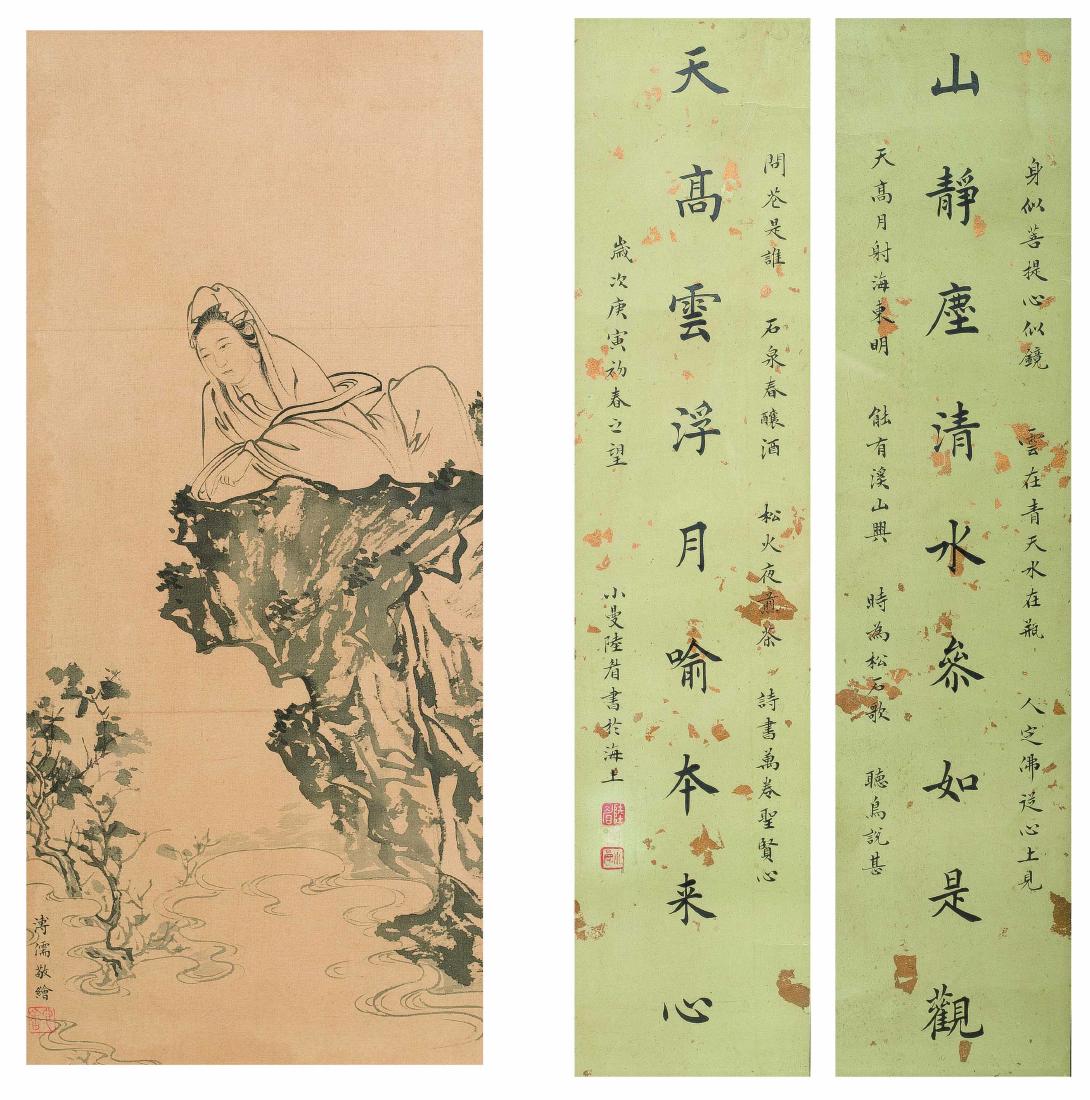 身似菩提心似鏡 雲在青天水在瓶 人定佛從心上見
山靜塵清水參如是觀
天高月射海東明 能有溪山興 時為松石歌 聽鳥說甚
問花是誰 石泉春釀酒 松火夜煎茶 詩書萬卷聖賢心
天高雲浮月喻本来心
歲次庚寅初春之望 小曼陸眉書於海上
溥儒敬繪